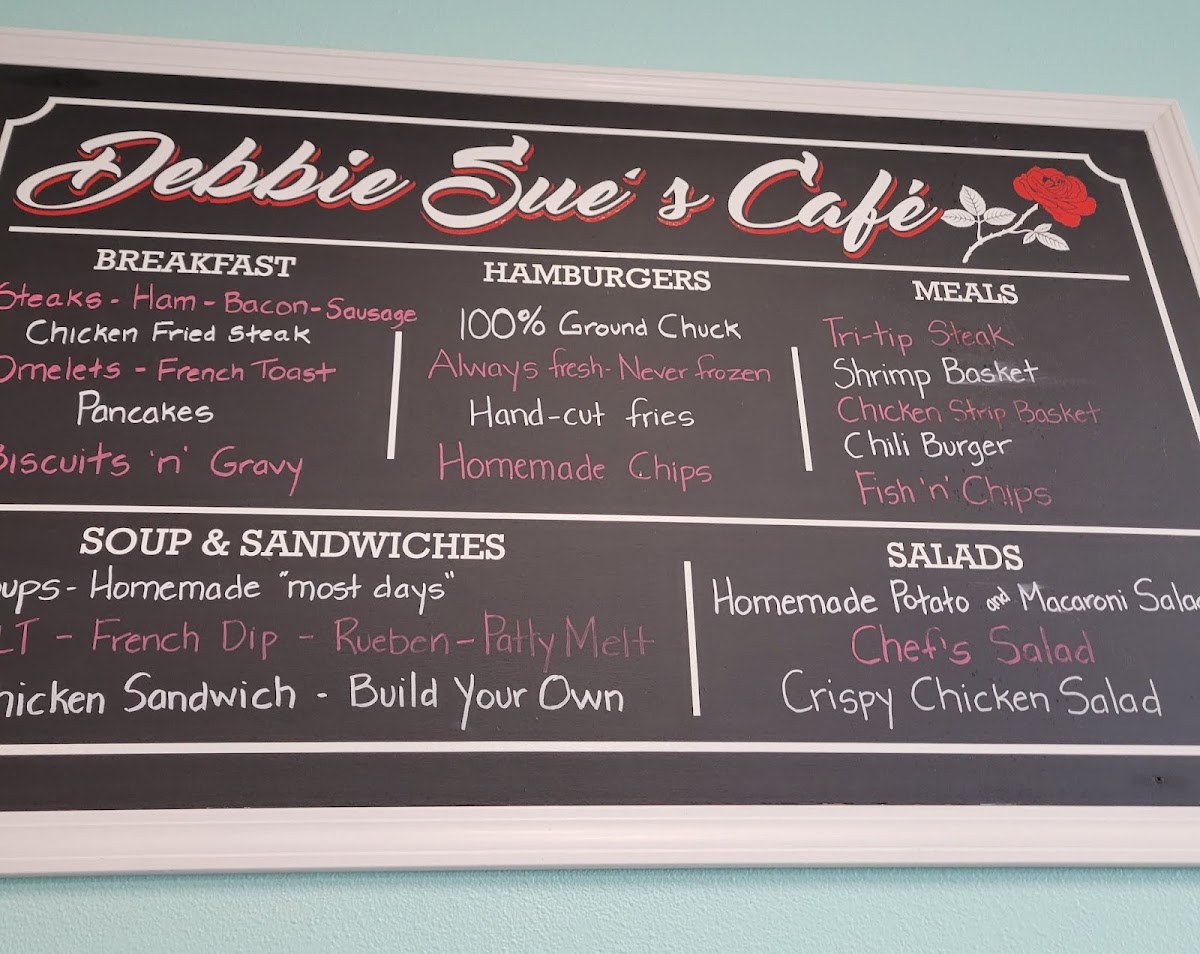 Debbie Sue's Café
BREAKFAST
Steaks - Ham - Bacon - Sausage
Chicken Fried Steak
Omelets - French Toast
Pancakes
Biscuits 'n' Gravy
HAMBURGERS
100% Ground Chuck
Always fresh - Never frozen
Hand-cut fries
Homemade Chips
MEALS
Tri-tip Steak
Shrimp Basket
Chicken Strip Basket
Chili Burger
Fish 'n' Chips
SOUP & SANDWICHES
oups - Homemade "most days"
LT - French Dip - Rueben - Patty Melt
hicken Sandwich - Build Your Own
SALADS
Homemade Potato and Macaroni Salad
Chef's Salad
Crispy Chicken Salad